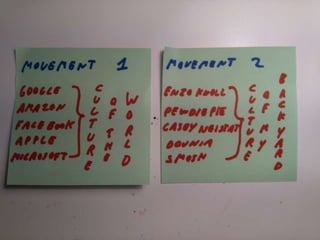 MOVEMENT 1
GOOGLE
AMAZON
FACEBOOK
APPLE
MICROSOFT
CULTURE
OF THE
WORLD
MOVEMENT 2
ENZO KNOLL
PEWDIEPIE
CASEY NEISTAT
DOUNIA
SMOSH
CULTURE
OF MY
BACKYARD